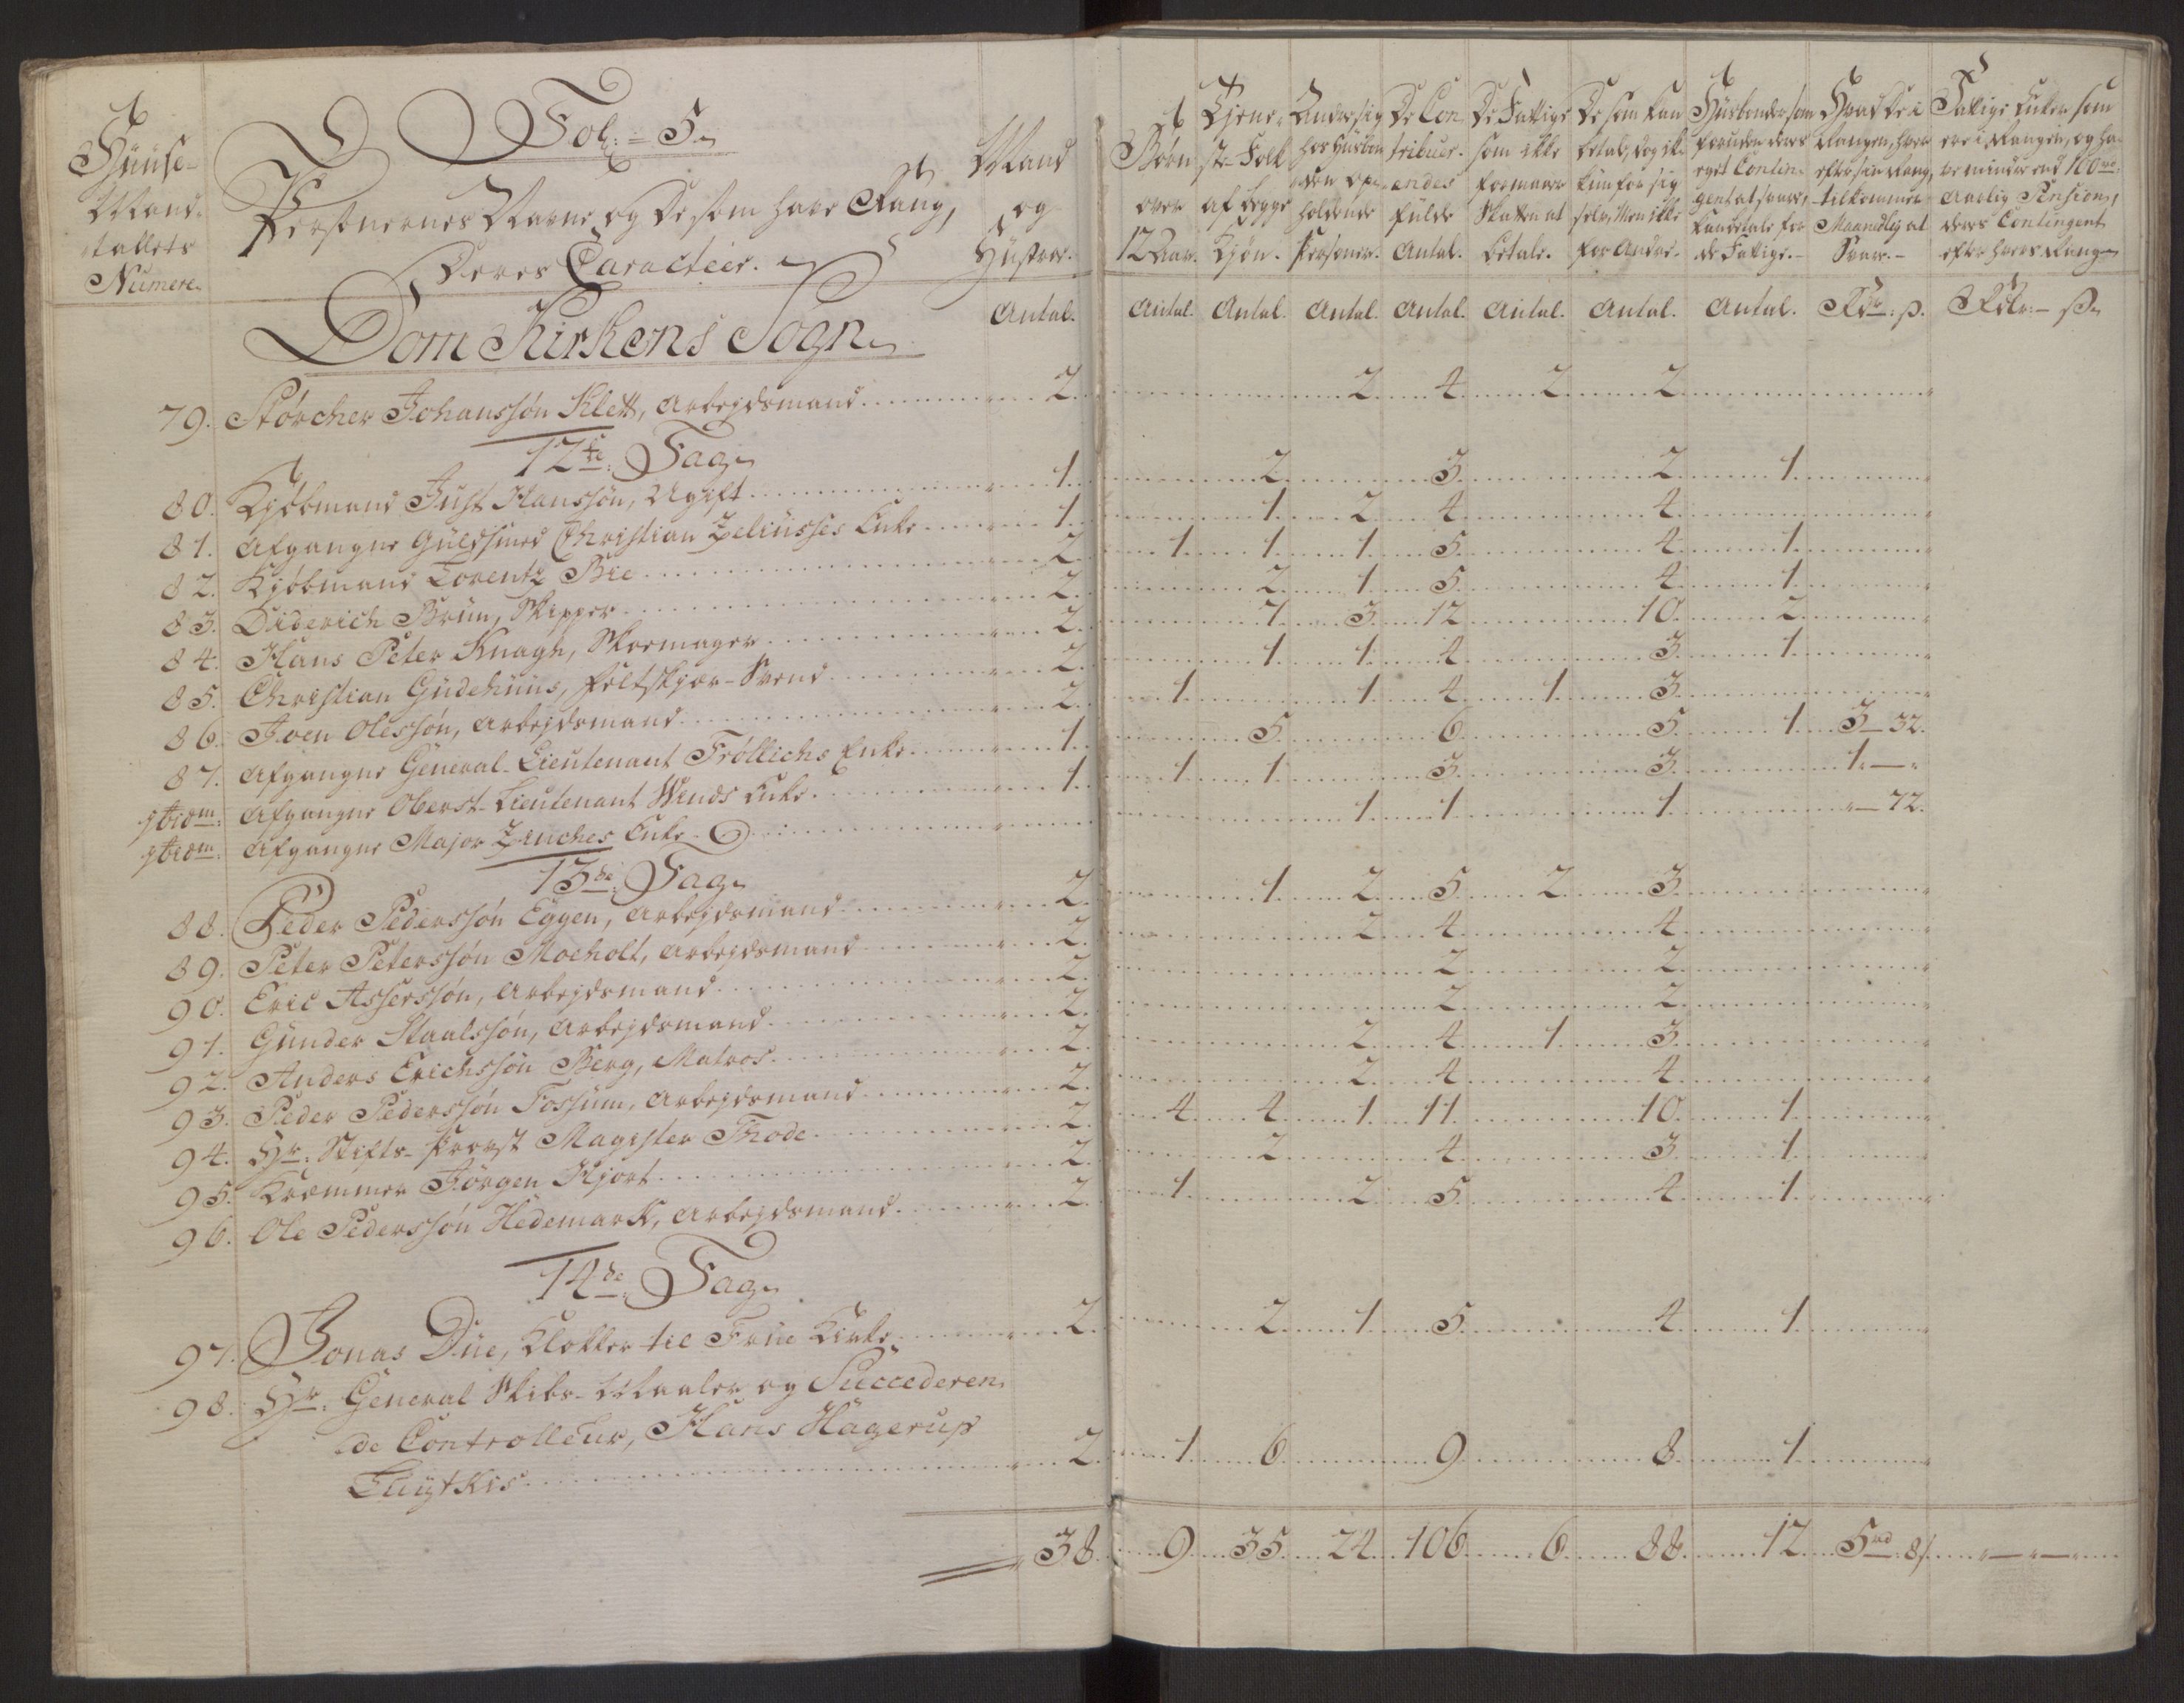 Fol: 5
Huuse-
Mand-
tallets
Numere.
Personernes Navne, og de som have Rang,
Deres Caracteer.
Mand
og
Hustrue.
Børn
over
12 Aar.
Tjene-
ste-Folk
af begge
Kjøn.
Andre sig
hos Husbon
den op-
holdende
Personer.
De Con
tribuer-
endes
fulde
Antal.
De Fattige
som ikke
formaaer
Skatten at
betale.
De som kan
betale, dog ikke
kun for sig
selv, Men ikke
for Andre.
Husbonder som
foruden deres
eget Contin-
gent at svare,
kan betale for
de Fattige.
Hvad De i
Rangen, hver
efter sin Rang,
tilkommer
Maanedlig at
Svare.
Fattige Enker som
ere i Rangen, og ha-
ve mindre end 100 rd
Aarlig Pension,
deres Contingent
efter hveres Rang
Antal. Antal. Antal. Antal. Antal. Antal. Antal. Antal. Rdr: s. Rdlr: s.
Dom Kirkens Sogn
79. Størcher Johanssøn Klett, Arbejdsmand 2. 2 4 2 2
12te Fag
80. Kjøbmand Just Hanssøn, Ugift 1. 2 3 2 1
81. Afgangne Guldsmed Christian Zeliusses Enke 1. 1 2 4 4
82. Kjøbmand Lorentz Bie 2. 1 1 1 5 4 1
83. Diderich Brun, Skipper 2. 2 1 5 4 1
84. Hans Peter Knagh, Skoemager 2. 7 3 12 10 2
85. Christian Gudehuus, Feltskjær-Svend 2. 1 1 4 3 1
86. Joen Olessøn, Arbejdsmand 2. 1 1 4 1 3
87. Afgangne General-Lieutenant Frøllichs Enke 1. 5 6 5 1 3-32.
Ibidm: Afgangne Oberst-Lieutenant Winds Enke 1 1 1 3 3 1.-
Ibidm: Afgangne Major Zanches Enke 1 1 1 -72.
13de Fag
88. Peder Pederssøn Eggen, Arbejdsmand 2. 1 2 5 2 3
89. Peter Peterssøn Moeholt, Arbejdsmand 2. 2 4 4
90. Eric Asserssøn, Arbejdsmand 2. 2 2
91. Gunder Staalssøn, Arbejdsmand 2. 2 2
92. Anders Erichssøn Berg, Matros 2. 2 4 1 3
93. Peder Pederssøn Fossum, Arbejdsmand 2. 2 4 4
94. Hr: Stifts-Provst Magister Thode 2. 4 4 1 11 10 1
95. Kræmmer Jörgen Hjort 2. 2 4 3 1
96. Ole Pederssøn Hedemark, Arbejdsmand 2. 1 2 5 4 1
14de Fag
97. Jonas Due, Klokker til Frue Kirke 2. 2 1 5 4 1
98. Hr: General Skibs-Maaler og Succederen
de Controlleur, Hans Hagerup
2. 1 6 9 8 1
38. 9 35 24 106 6 88 12 5rd 8s - -